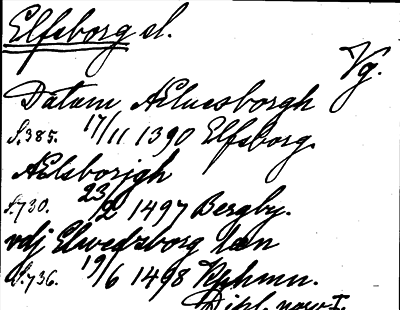 Elfsborg sl.
Vg.
Datum Æluesborgh
S.385. 17/11 1390 Elfsborg.
Ælsborjgh
S.730. 23/2 1497 Bergby.
vdj Elwedzborg læn
S.736. 19/6 1498 Kphmn.
Dipl. norv. I.